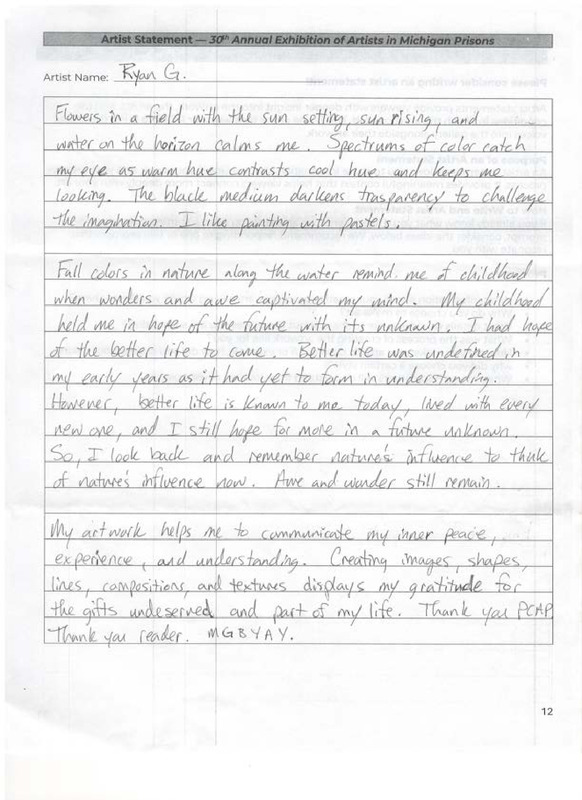 Artist Statement — 30th Annual Exhibition of Artists in Michigan Prisons
Artist Name: Ryan G.
Flowers in a field with the sun setting, sun rising, and
water on the horizon calms me. Spectrums of color catch
my eye as warm hue contrasts cool hue and keeps me
looking. The black medium darkens trasparency to challenge
the imagination. I like painting with pastels.
Fall colors in nature along the water remind me of childhood
when wonders and awe captivated my mind. My childhood
held me in hope of the future with its unknown. I had hope
of the better life to come. Better life was undefined in
my early years as it had yet to form in understanding.
However, better life is known to me today, lived with every
new one, and I still hope for more in a future unknown.
So, I look back and remember nature's influence to think
of nature's influence now. Awe and wonder still remain.
My artwork helps me to communicate my inner peace,
experience, and understanding. Creating images, shapes,
lines, compositions, and textures displays my gratitude for
the gifts undeserved and part of my life. Thank you PCAP
Thank you reader. MGBYAY.
12